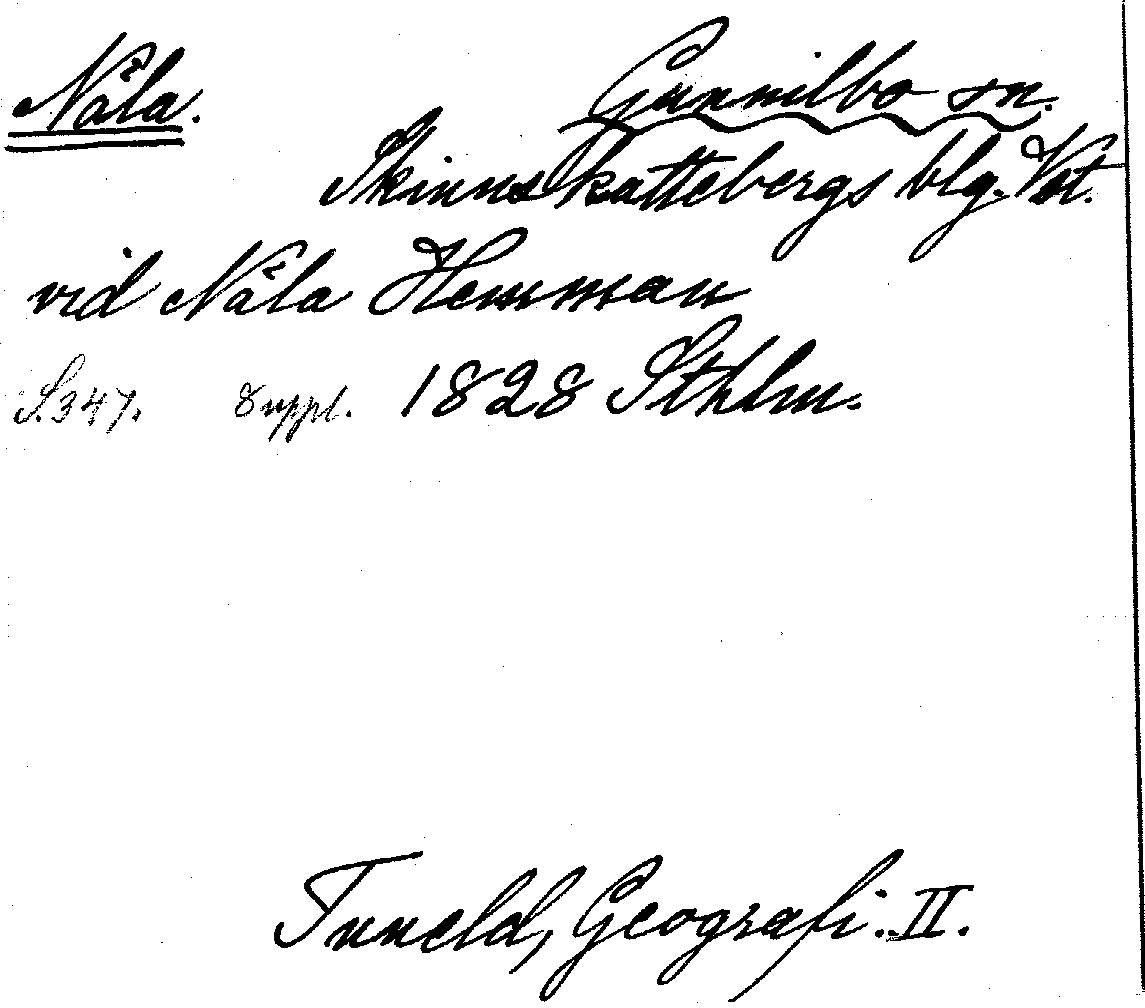 Nåla. Gunnilbo sn.
Skinnskattebergs blg. Vst.
vid Nåla Hemman
S. 347. Suppl. 1828 Sthlm.
Tuneld, Geografi. II.